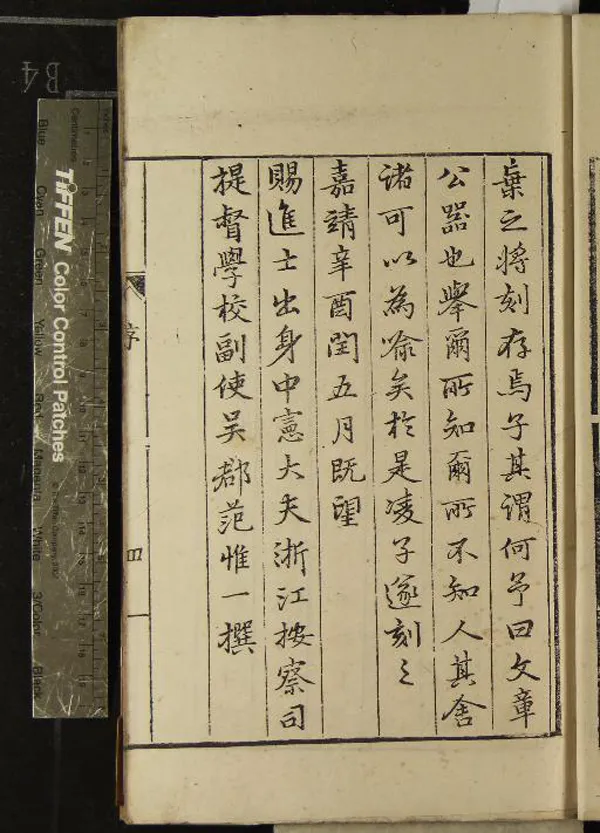 棄之將刻存焉子其謂何予曰文章
公器也舉爾所知爾所不知人其舍
諸可以為喻矣於是凌子遂刻之
嘉靖辛酉閏五月既望
賜進士出身中憲大夫浙江按察司
提督學校副使吳郡范惟一撰
序
四
B4
TIFFEN Color Control Patches
Centimetres
Blue
Cyan
Green
Yellow
Red
Magenta
White
3/Color
Black